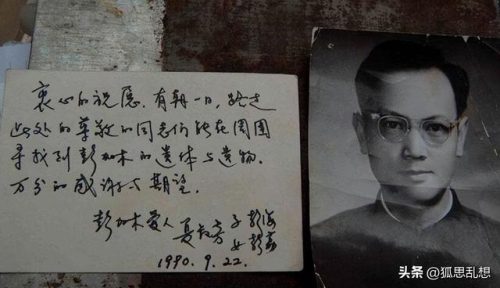 衷心的祝愿，有朝一日，路走
此处的尊敬的同志们能在周围
寻找到彭加木的遗体与遗物，
万分的感谢与期望。
彭加木爱人 夏叔芳 子 彭海
女 彭荔
1990.9.22.
头条 @狐思乱想